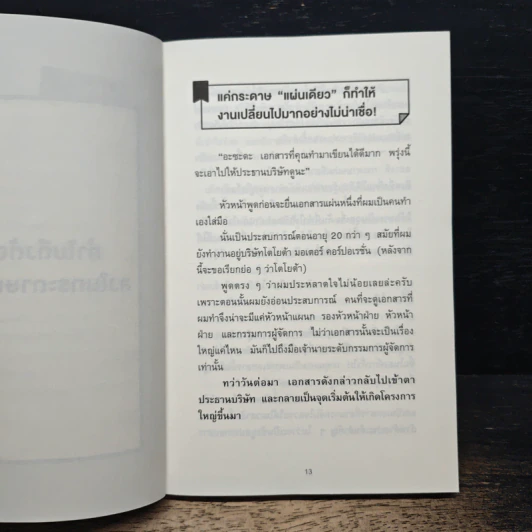 แค่กระดาษ “แผ่นเดียว” ก็ทำให้
งานเปลี่ยนไปมากอย่างไม่น่าเชื่อ!
“อะซะดะ เอกสารที่คุณทำมาเขียนได้ดีมาก พรุ่งนี้
จะเอาไปให้ประธานบริษัทดูนะ”
หัวหน้าพูดก่อนจะยื่นเอกสารแผ่นหนึ่งที่ผมเป็นคนทำ
เองใส่มือ
นั่นเป็นประสบการณ์ตอนอายุ 20 กว่า ๆ สมัยที่ผม
ยังทำงานอยู่บริษัทโตโยต้า มอเตอร์ คอร์ปอเรชั่น (หลังจาก
นี้จะขอเรียกย่อ ๆ ว่าโตโยต้า)
พูดตรง ๆ ว่าผมประหลาดใจไม่น้อยเลยล่ะครับ
เพราะตอนนั้นผมยังอ่อนประสบการณ์ คนที่จะดูเอกสารที่
ผมทำจึงน่าจะมีแค่หัวหน้าแผนก รองหัวหน้าฝ่าย หัวหน้า
ฝ่าย และกรรมการผู้จัดการ ไม่ว่าเอกสารนั้นจะเป็นเรื่อง
ใหญ่แค่ไหน มันก็ไปถึงมือเจ้านายระดับกรรมการผู้จัดการ
เท่านั้น
ทว่าวันต่อมา เอกสารดังกล่าวกลับไปเข้าตา
ประธานบริษัท และกลายเป็นจุดเริ่มต้นให้เกิดโครงการ
ใหญ่ขึ้นมา
13